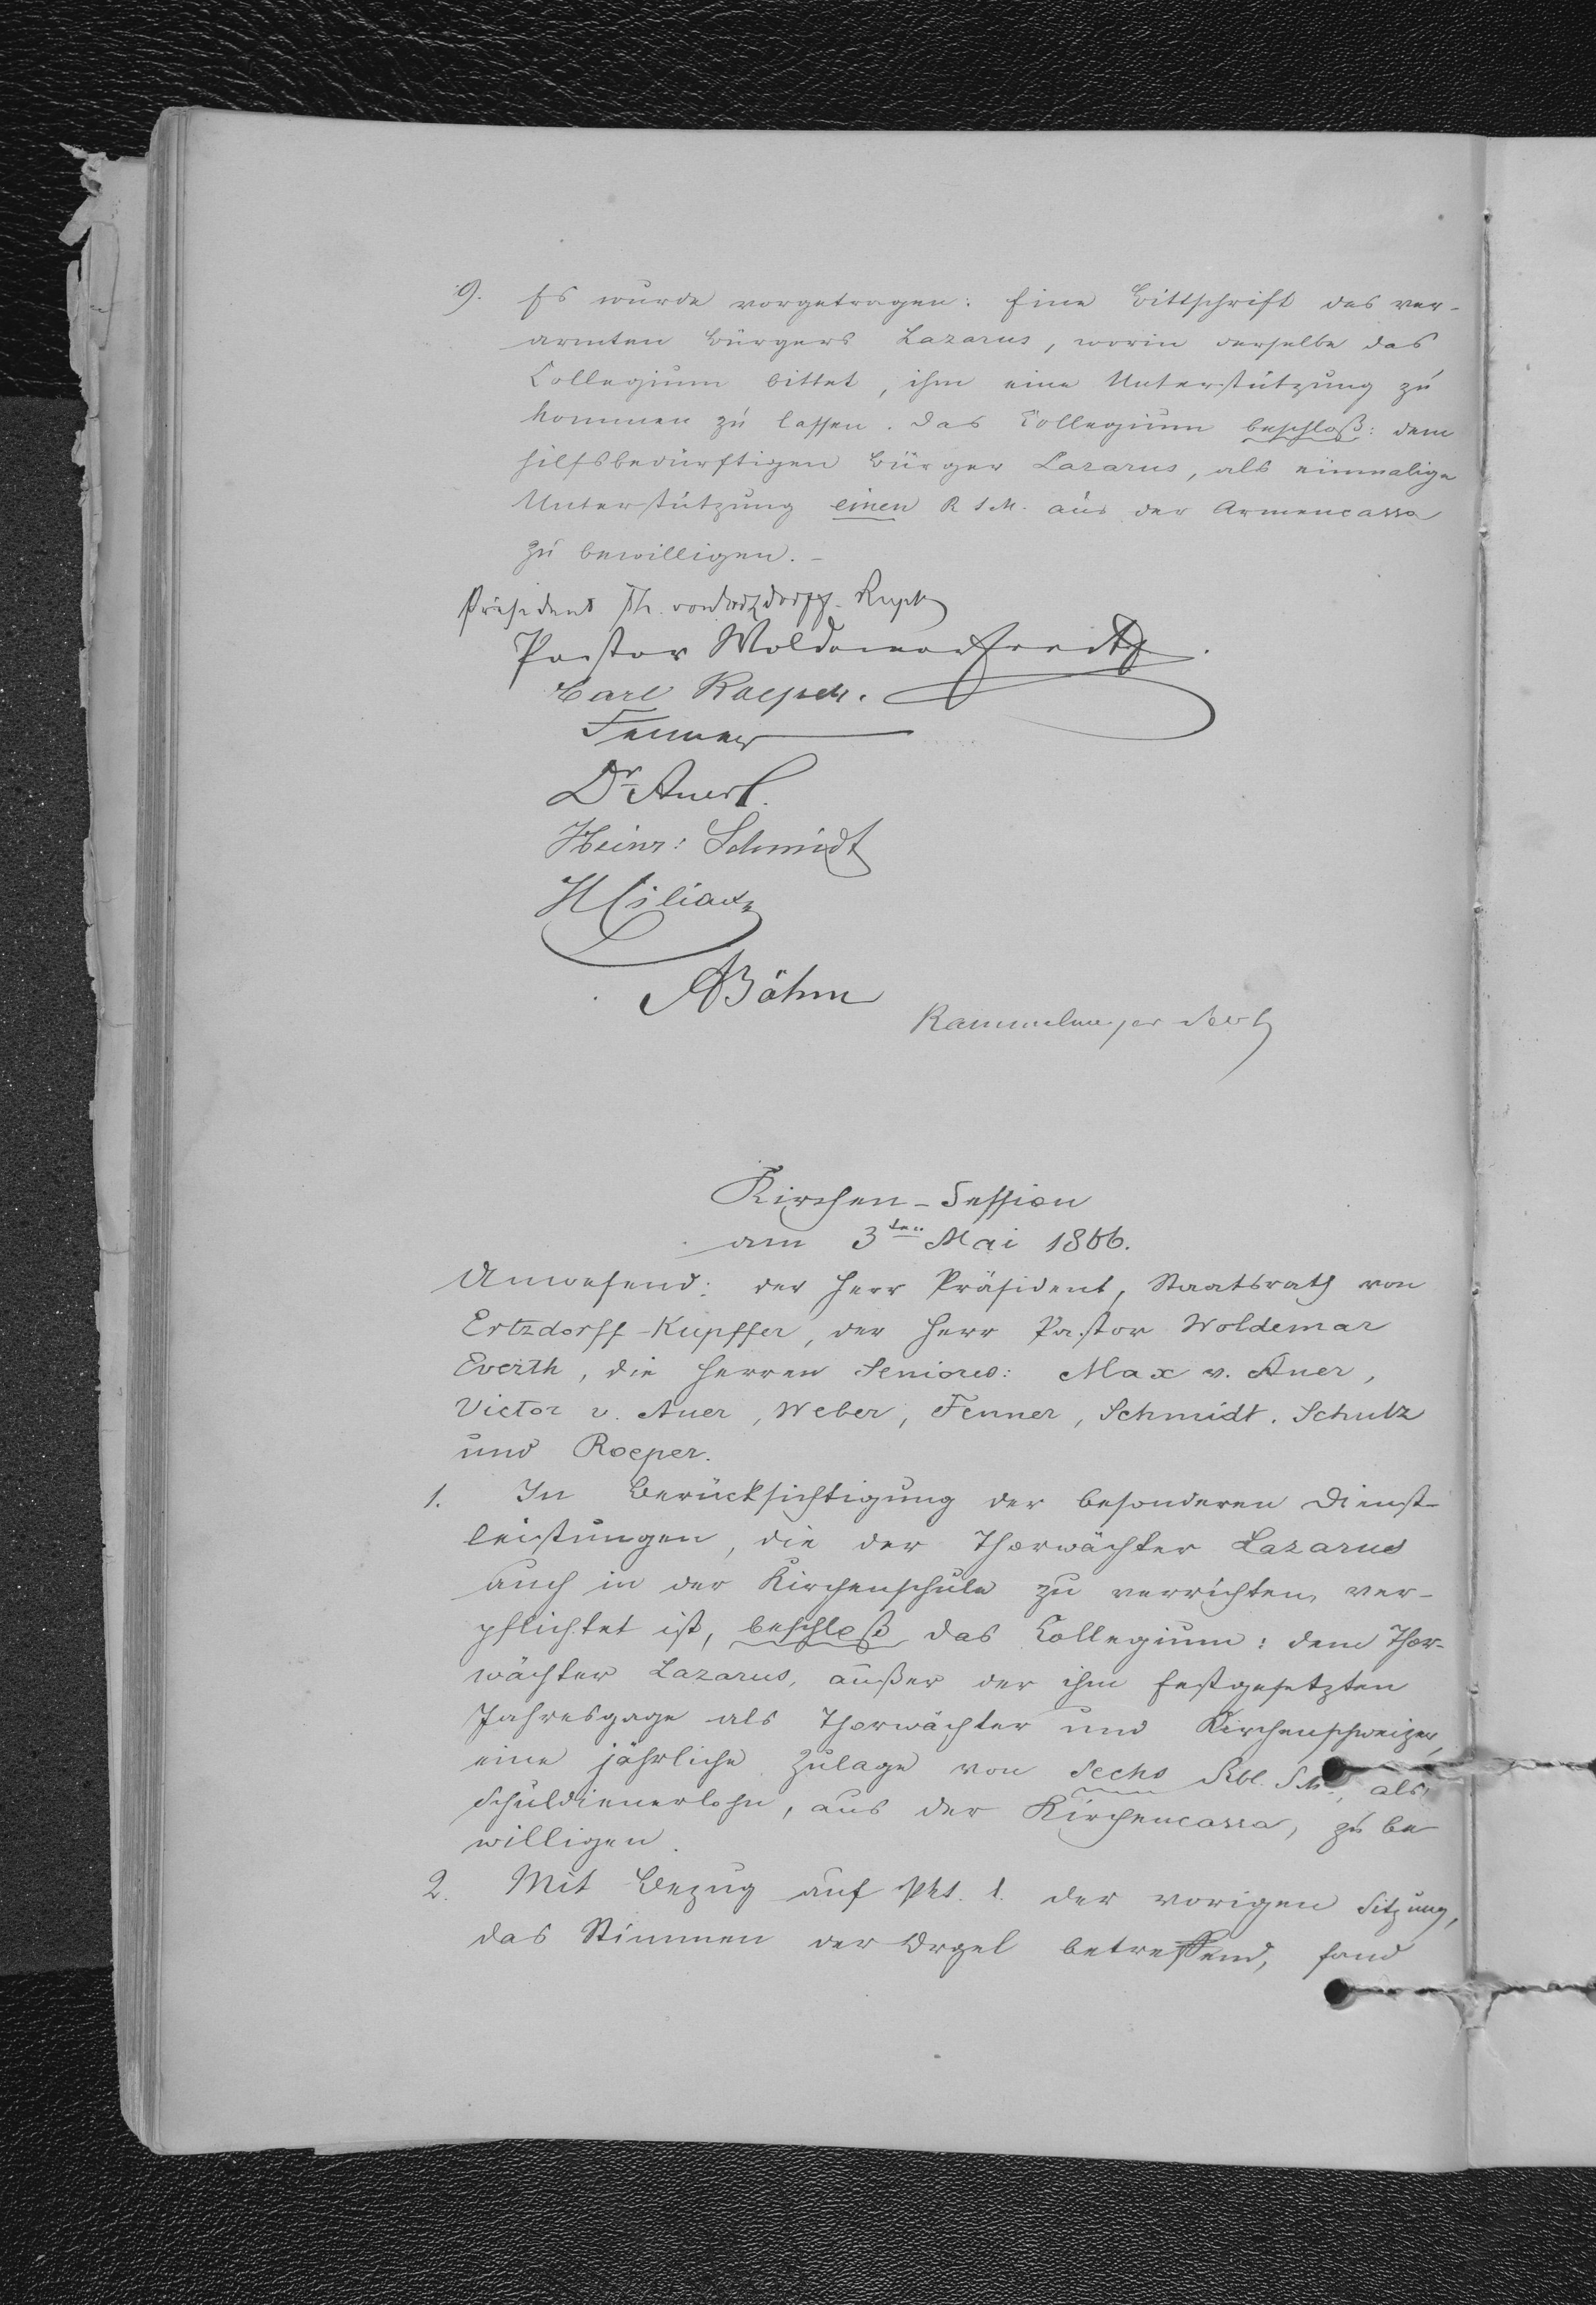 9. Es wurde vorgetragen: Eine Bittschrift des ver-
armten Bürgers Lazarus, worin derselbe das
Collegium bittet, ihm eine Unterstützung zu
kommen zu lassen. Das Collegium beschloß: dem
hilfsbedürftigen Bürger Lazarus, als einmalige
Unterstützung einen R S.M. aus der Armencassa
zu bewilligen. –
Präsident Th. von Ertzdorff-Kupffer
Pastor Woldemar Everth.
Carl Roeper.
Fenner
Dr Auer
Heinr: Schmidt
ABöhm
Kirchen-Session
am 3ten Mai 1866.
Anwesend: der Herr Präsident, Staatsrath von
Ertzdorff-Kupffer, der Herr Pastor Woldemar
Everth, die Herren Seniores: Max v. Auer,
Victor v. Auer, Weber, Fenner, Schmidt, Schulz
und Roeper.
1. In Berücksichtigung der besonderen Dienst-
leistungen, die der Thorwächter Lazarus
auch in der Kirchenschule zu verrichten ver-
pflichtet ist, beschloß das Collegium: dem Thor-
wächter Lazarus, außer der ihm festgesetzten
Jahresgage als Thorwächter und Kirchenschweizer,
eine jährliche Zulage von sechs Rbl. S.M., als
Schuldienerlohn, aus der Kirchencassa, zu be-
willigen.
2. Mit Bezug auf Pkt. 1. der vorigen Sitzung,
das Stimmen der Orgel betreffend, fand